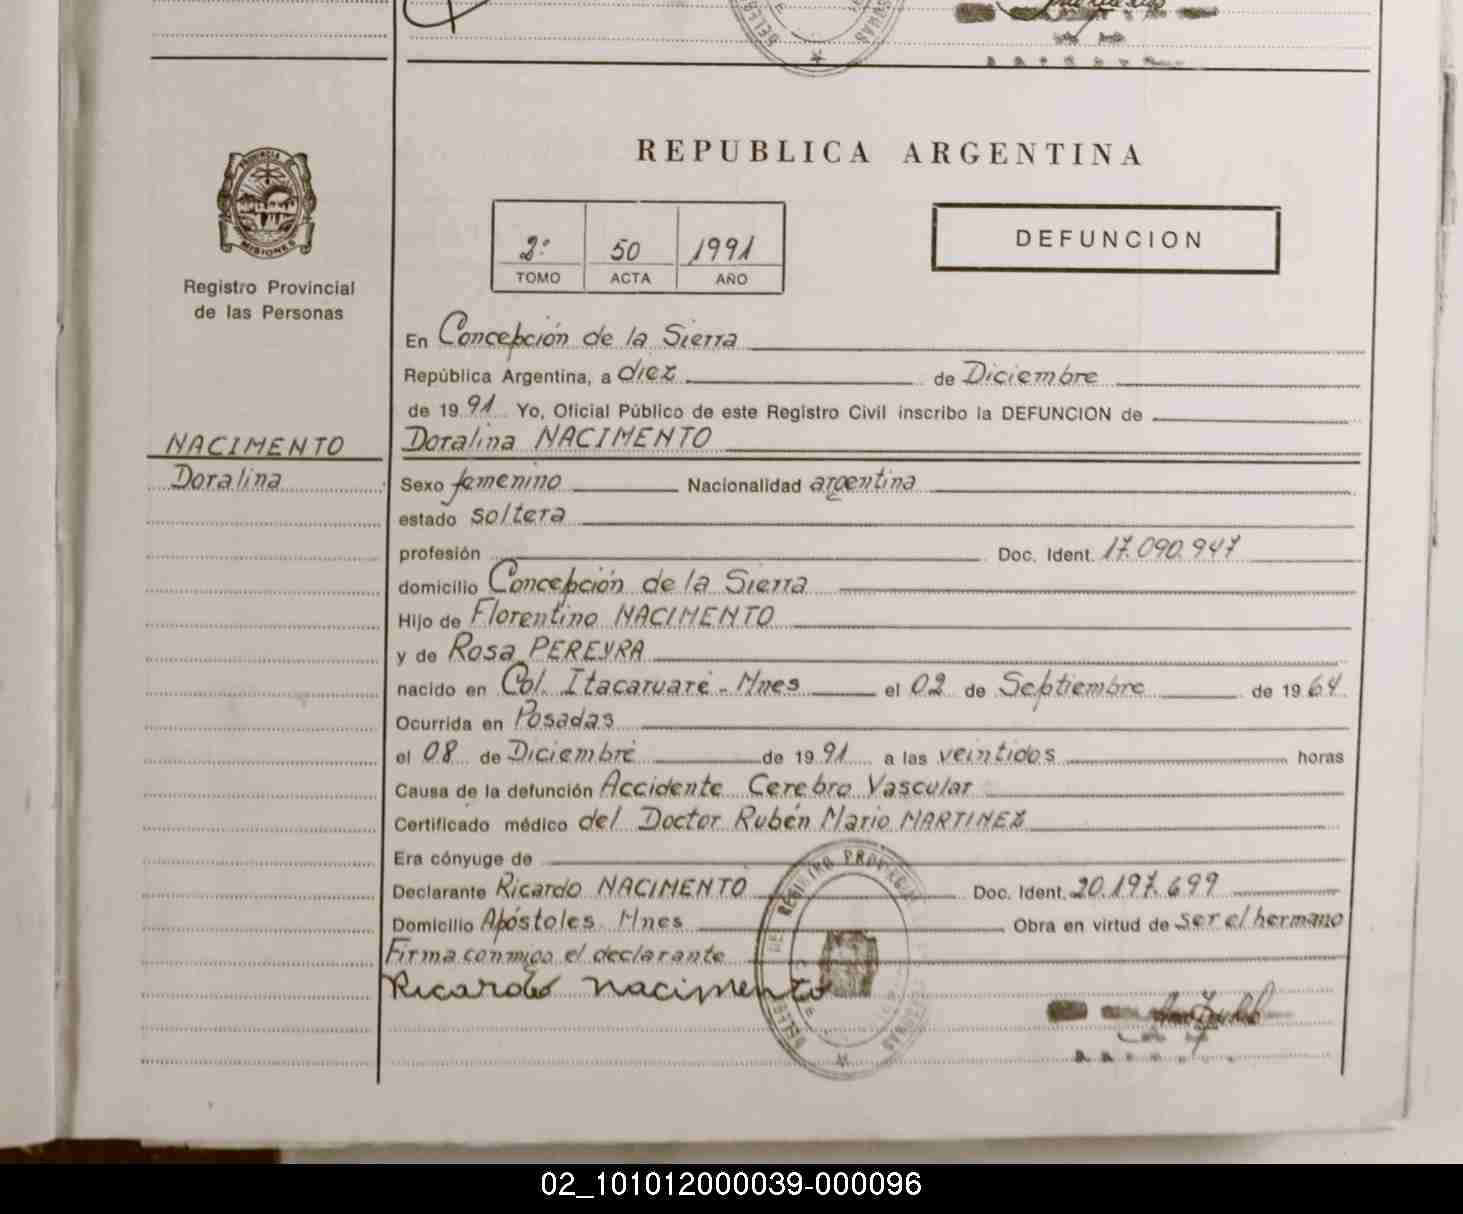 REPUBLICA ARGENTINA
PROVINCIA DE
MISIONES
Registro Provincial
de las Personas
2º 50 1991
TOMO ACTA AÑO
DEFUNCION
En Concepción de la Sierra
República Argentina, a diez de Diciembre
de 1991 Yo, Oficial Público de este Registro Civil inscribo la DEFUNCION de
NACIMENTO
Doralina
Doralina NACIMENTO
Sexo femenino Nacionalidad argentina
estado soltera
profesión Doc. Ident. 17.090.947
domicilio Concepción de la Sierra
Hijo de Florentino NACIMENTO
y de Rosa PEREYRA
nacido en Col. Itacaruaré - Mnes el 02 de Septiembre de 1964
Ocurrida en Posadas
el 08 de Diciembre de 1991 a las veintidos horas
Causa de la defunción Accidente Cerebro Vascular
Certificado médico del Doctor Rubén Mario MARTINEZ
Era cónyuge de
Declarante Ricardo NACIMENTO Doc. Ident. 20.197.699
Domicilio Apóstoles Mnes Obra en virtud de ser el hermano
Firma conmigo el declarante
Ricardo Nacimento
DEL REGISTRO PROVINCIAL
02_101012000039-000096